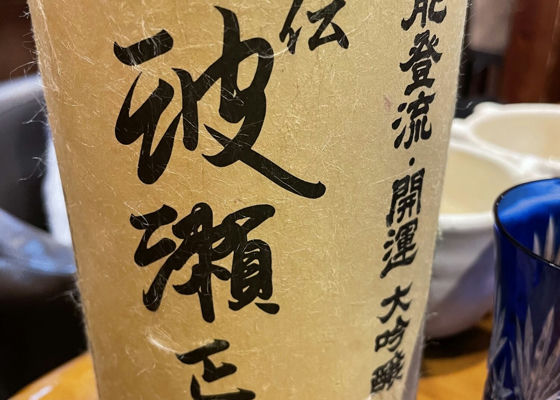 能登流・開運 大吟醸
伝
波瀬正